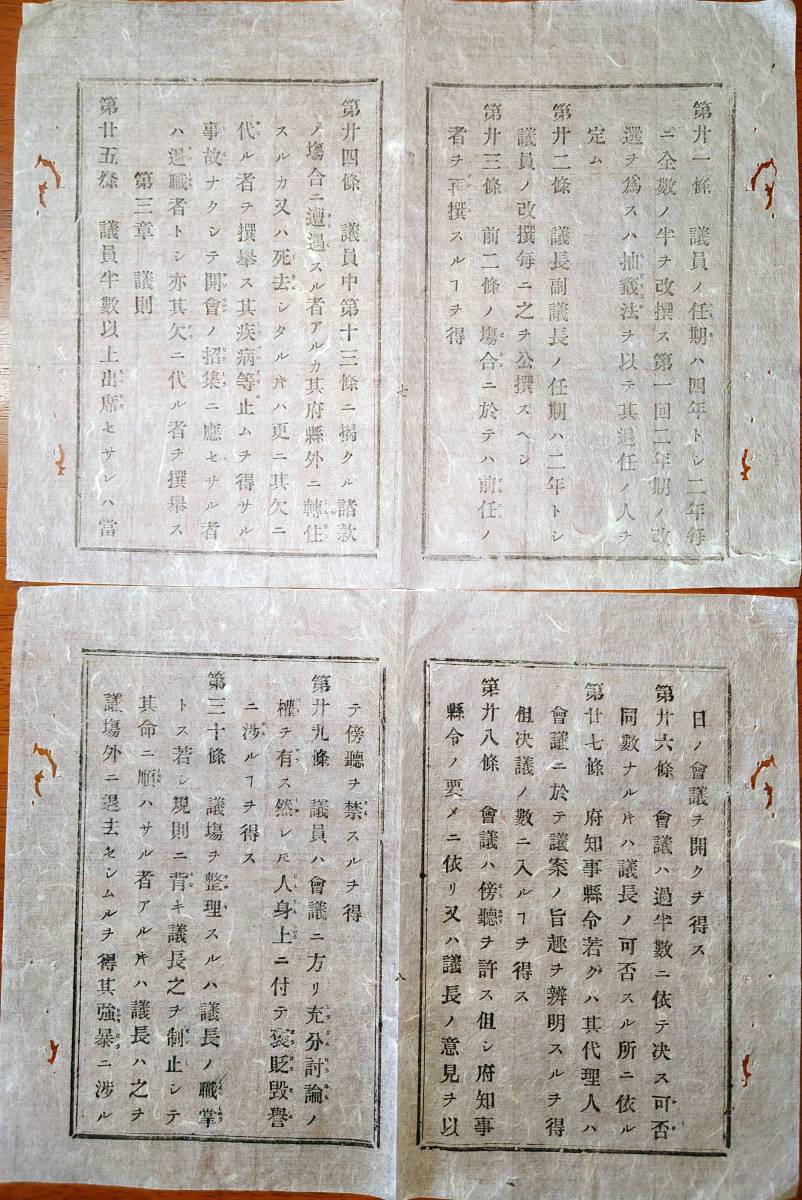 第廿一條　議員ノ任期ハ四年トシ二年毎
ニ全數ノ半ヲ改撰ス第一回二年期ノ改
選ヲ爲スハ抽籤法ヲ以テ其退任ノ人ヲ
定ム
第廿二條　議長副議長ノ任期ハ二年トシ
議員ノ改撰毎ニ之ヲ公撰スヘシ
第廿三條　前二條ノ塲合ニ於テハ前任ノ
者ヲ再撰スルヿヲ得
七
第廿四條　議員中第十三條ニ揭クル諸款
ノ塲合ニ遭遇スル者アルカ其府縣外ニ轉住
スルカ又ハ死去シタル𪜈ハ更ニ其欠ニ
代ル者ヲ撰擧ス其疾病等止ムヲ得サル
事故ナクシテ開會ノ招集ニ應セサル者
ハ退職者トシ亦其欠ニ代ル者ヲ撰擧ス
第三章　議則
第廿五條　議員半數以上出席セサレハ當
日ノ會議ヲ開クヲ得ス
第廿六條　會議ハ過半數ニ依テ决ス可否
同數ナル𪜈ハ議長ノ可否スル所ニ依ル
第廿七條　府知事縣令若クハ其代理人ハ
會議ニ於テ議案ノ旨趣ヲ辨明スルヲ得
但决議ノ數ニ入ルヿヲ得ス
第廿八條　會議ハ傍聽ヲ許ス但シ府知事
縣令ノ要メニ依リ又ハ議長ノ意見ヲ以
八
テ傍聽ヲ禁スルヲ得
第廿九條　議員ハ會議ニ方リ充分討論ノ
權ヲ有ス然レ𪜈人身上ニ付テ褒貶毀譽
ニ渉ルヿヲ得ス
第三十條　議塲ヲ整理スルハ議長ノ職掌
トス若シ規則ニ背キ議長之ヲ制止シテ
其命ニ順ハサル者アル𪜈ハ議長ハ之ヲ
議塲外ニ退去セシムルヲ得其強暴ニ渉ル